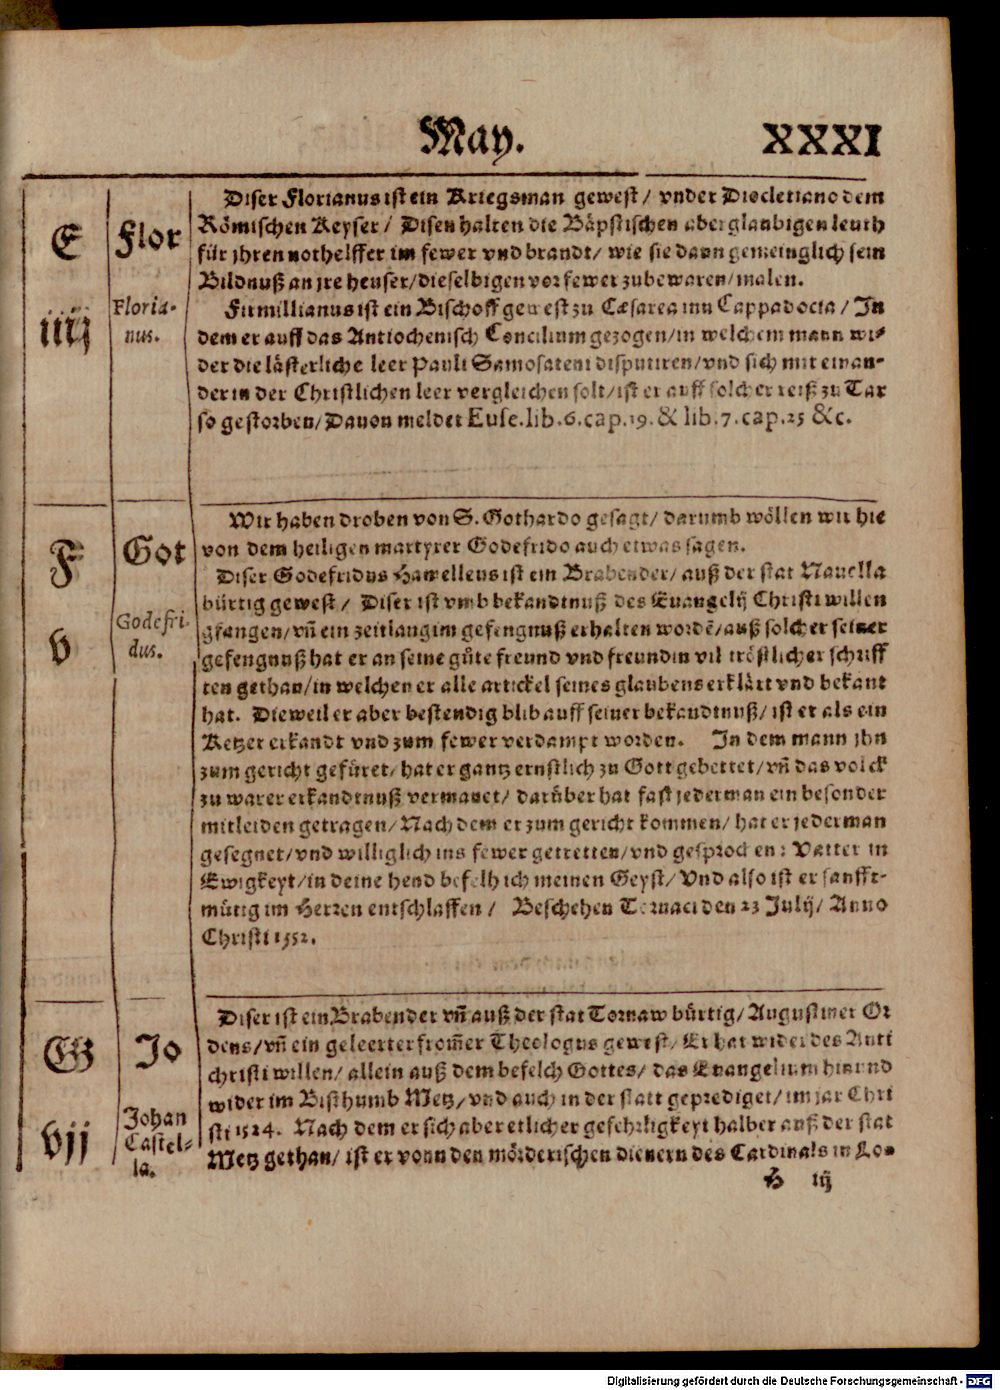 May.
XXXI
E
iiij
Flor
Floria-
nus.
Diser Florianus ist ein Kriegsman gewest/ vnder Diocletiano dem
Römischen Keyser/ Disen halten die Bäpstischen aberglaubigen leuth
für jhren nothelffer im fewer vnd brandt/ wie sie dann gemeinglich sein
Bildnuß an jre heuser/ dieselbigen vor fewer zubewaren/ malen.
Firmillianus ist ein Bischoff gewest zu Cæsarea inn Cappadocia/ In
dem er auff das Antiochenisch Concilium gezogen/ in welchem mann wi-
der die lästerliche leer Pauli Samosateni disputiren/ vnd sich mit einan-
der in der Christlichen leer vergleichen solt/ ist er auff solcher reiß zu Tar
so gestorben/ Dauon meldet Euse. lib. 6. cap. 19. & lib. 7. cap. 25 &c.
F
v
Got
Godefri-
dus.
Wir haben droben von S. Gothardo gesagt/ darumb wöllen wir hie
von dem heiligen martyrer Godefrido auch etwas sagen.
Diser Godefridus Hawelleus ist ein Brabender/ auß der stat Nauella
bürtig gewest/ Diser ist vmb bekandtnuß des Euangelij Christi willen
gfangen/ vñ ein zeitlang im gefengnuß erhalten wordē/ auß solcher seiner
gefengnuß hat er an seine gůte freund vnd freundin vil tröstlicher schriff
ten gethan/ in welchen er alle artickel seines glaubens erklärt vnd bekant
hat. Dieweil er aber bestendig blib auff seiner bekandtnuß/ ist er als ein
Ketzer erkandt vnd zum fewer verdampt worden. In dem mann jhn
zum gericht gefüret/ hat er gantz ernstlich zu Gott gebettet/ vñ das volck
zu warer erkandtnuß vermanet/ darüber hat fast jederman ein besonder
mitleiden getragen/ Nach dem er zum gericht kommen/ hat er jederman
gesegnet/ vnd williglich ins fewer getretten/ vnd gesprochen: Vatter in
Ewigkeyt/ in deine hend befelh ich meinen Geyst/ Vnd also ist er sanfft-
mütig im Herren entschlaffen/ Beschehen Tornaci den 23 Julij/ Anno
Christi 1552.
G
vij
Jo
Johan
Castel-
la.
Diser ist ein Brabender vñ auß der stat Tornaw bürtig/ Augustiner Or
dens/ vñ ein geleerter from̃er Theologus gewest/ Er hat wider des Anti
christi willen/ allein auß dem befelch Gottes/ das Euangelium hin vnd
wider im Bisthumb Metz/ vnd auch in der statt geprediget/ im jar Chri
sti 1524. Nach dem er sich aber etlicher gefehrligkeyt halber auß der stat
Metz gethan/ ist er vonn den mörderischen dienern des Cardinals in Lo-
H iij
Digitalisierung gefördert durch die Deutsche Forschungsgemeinschaft - DFG